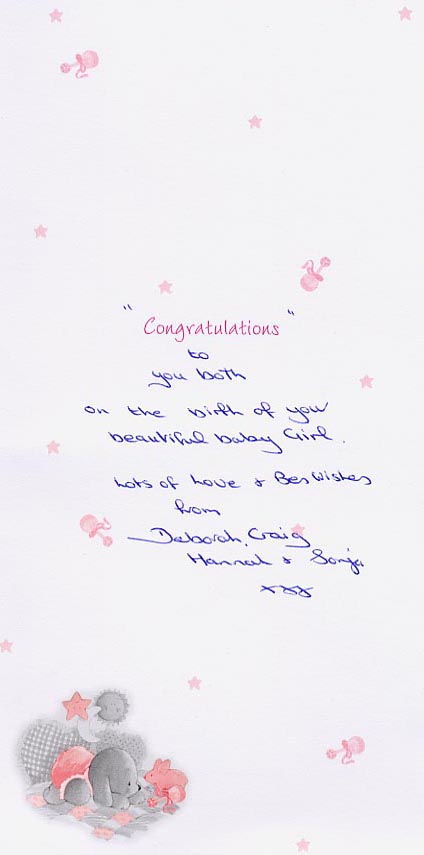 " Congratulations "
to
you both
on the birth of your
beautiful baby Girl.
Lots of Love & Bes Wishes
from
Deborah, Craig
Hannah & Sonja
xxx